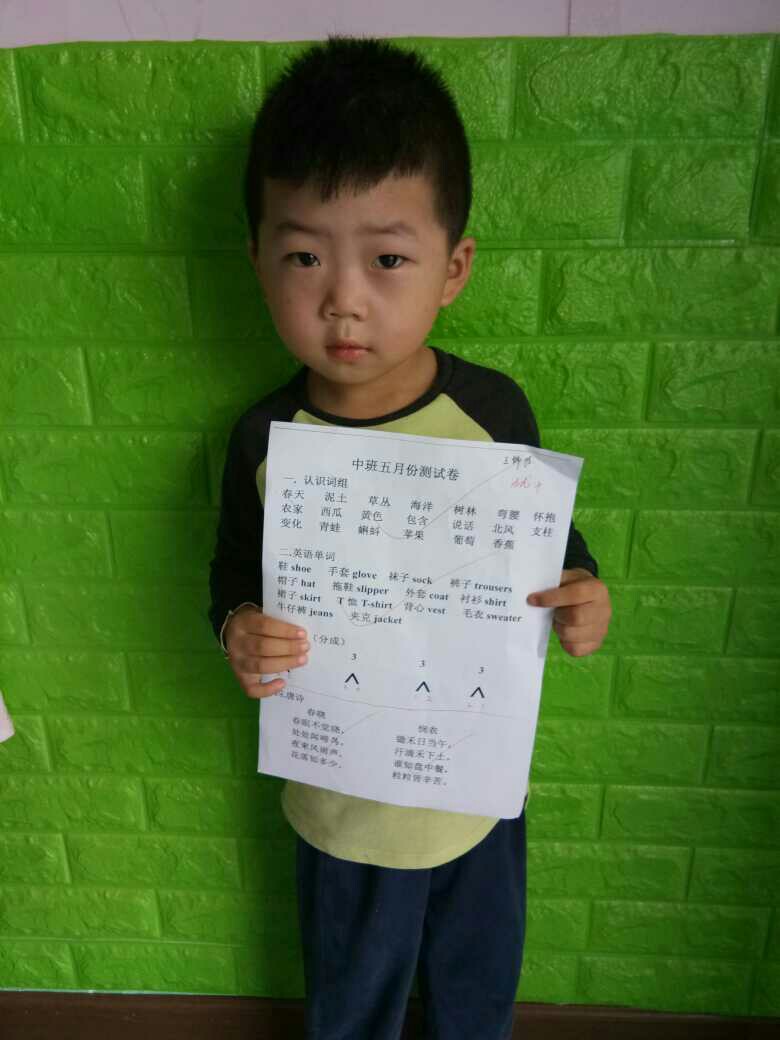 中班五月份测试卷
一、认识词组
春天 泥土 草丛 海洋 树林 弯腰 怀抱
农家 西瓜 黄色 包含 说话 北风 支柱
变化 青蛙 蝌蚪 苹果 葡萄 香蕉
二.英语单词
鞋 shoe 手套 glove 袜子 sock 裤子 trousers
帽子 hat 拖鞋 slipper 外套 coat 衬衫 shirt
裙子 skirt T 恤 T-shirt 背心 vest 毛衣 sweater
牛仔裤 jeans 夹克 jacket
（分成）
3 3 3
唐诗
春晓
春眠不觉晓，
处处闻啼鸟。
夜来风雨声，
花落知多少。
悯农
锄禾日当午，
汗滴禾下土。
谁知盘中餐，
粒粒皆辛苦。